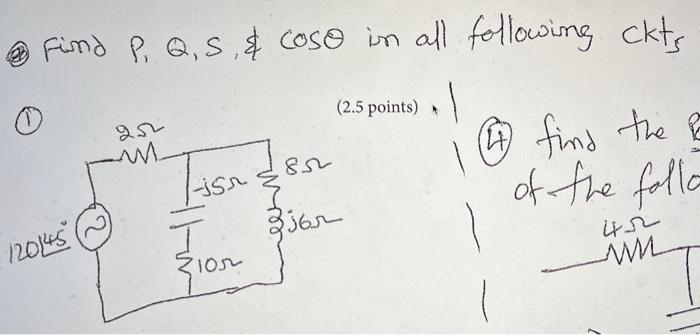 Find P, Q, S, & cosθ in all following ckts
①
(2.5 points)
2Ω
-j5Ω
8Ω
j6Ω
10Ω
120∠45°
④ find the
of the follo
4Ω